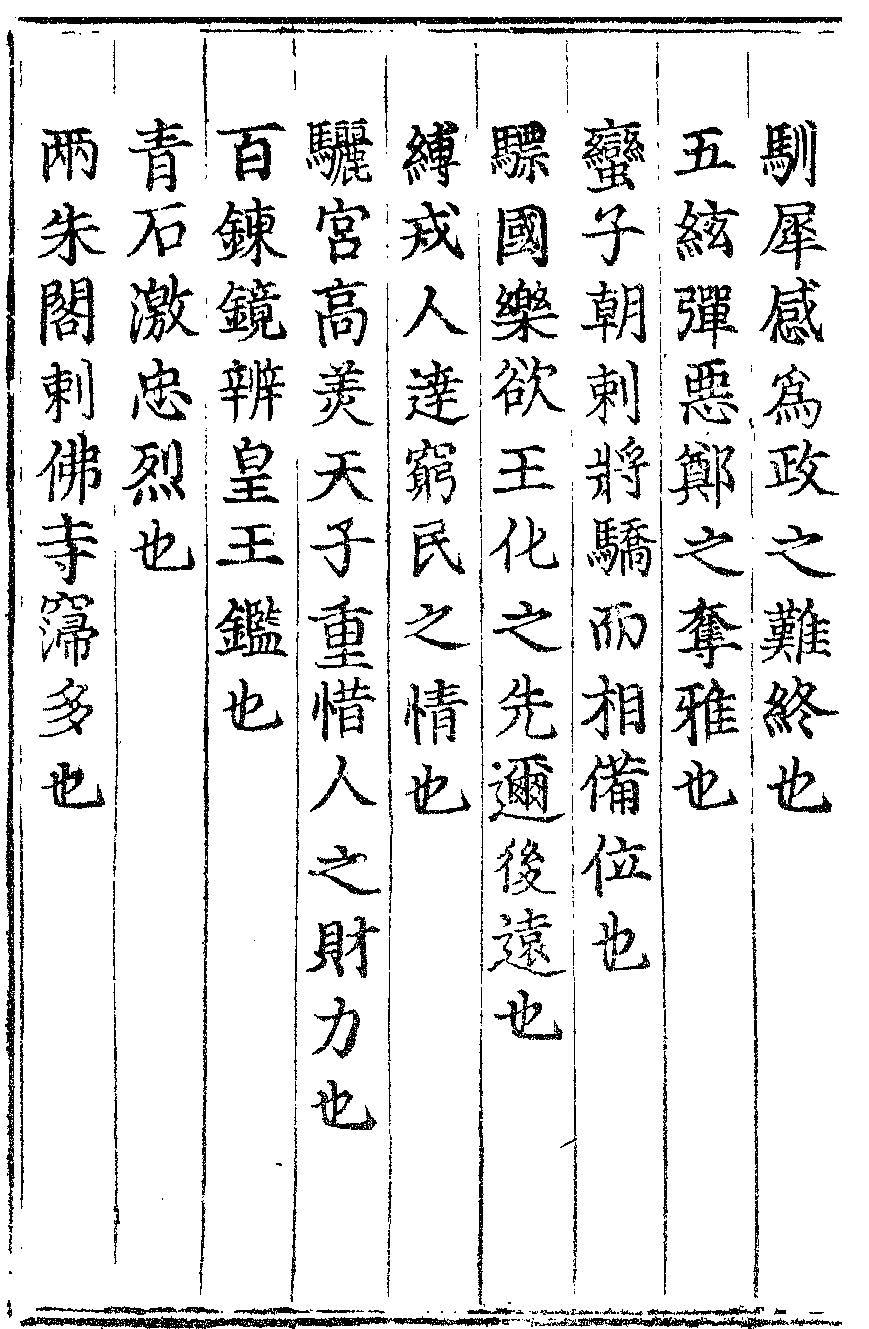 馴犀感爲政之難終也
五絃彈惡鄭之奪雅也
蠻子朝刺將驕而相備位也
驃國樂欲王化之先邇後遠也
縛戎人達窮民之情也
驪宮高美天子重惜人之財力也
百鍊鏡辨皇王鑑也
青石激忠烈也
兩朱閣刺佛寺寖多也